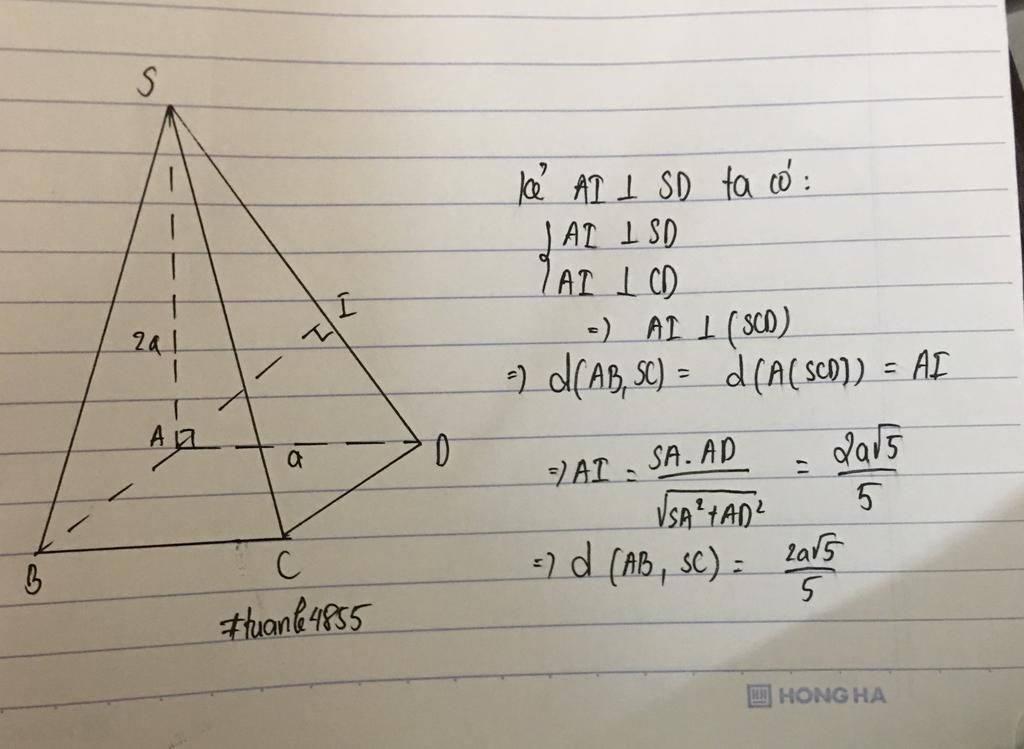 S
2a
I
A
a
D
B
C
#tuanle4855
kẻ AI ⊥ SD ta có:
{ AI ⊥ SD
AI ⊥ CD
=) AI ⊥ (SCD)
=) d(AB, SC) = d(A(SCD)) = AI
=) AI = SA. AD / √SA² + AD² = 2a√5 / 5
=) d (AB, SC) = 2a√5 / 5
HH HONG HA